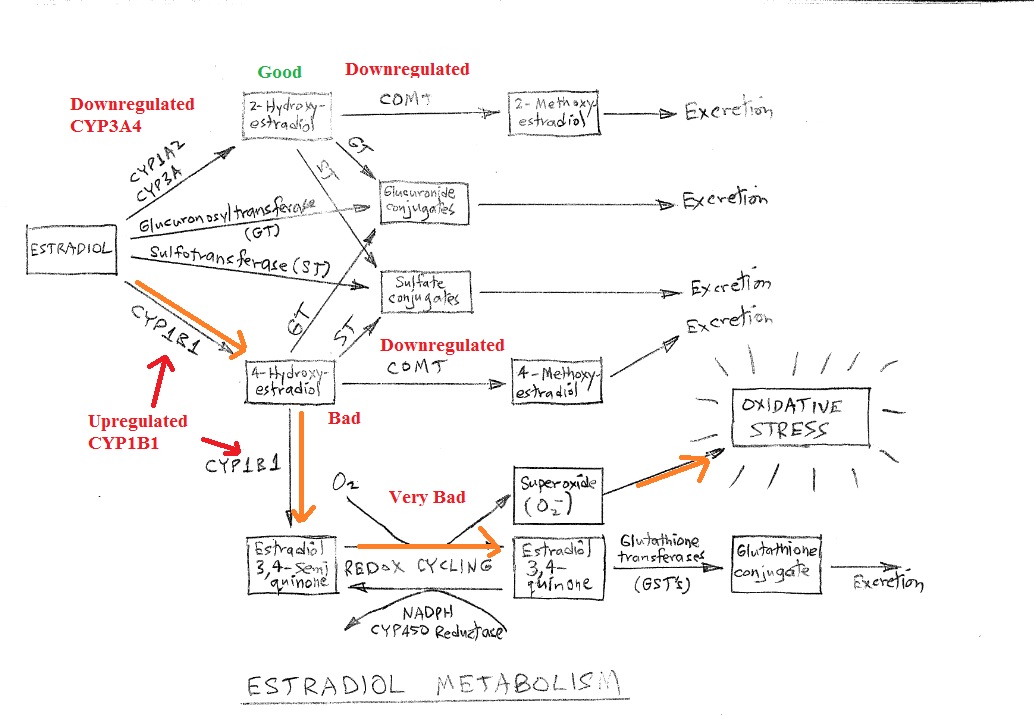 Good
Downregulated
Downregulated
CYP3A4
2-Hydroxy-
estradiol
COMT
2-Methoxy
estradiol
Excretion
CYP1A2
CYP3A
GT
ST
Glucuronosyltransferase
(GT)
Glucuronide
conjugates
Excretion
ESTRADIOL
Sulfotransferase (ST)
Sulfate
conjugates
Excretion
CYP1B1
GT
ST
Excretion
4-Hydroxy-
estradiol
Downregulated
COMT
4-Methoxy-
estradiol
OXIDATIVE
STRESS
Bad
Upregulated
CYP1B1
CYP1B1
O2
Very Bad
Superoxide
(O2-)
Estradiol
3,4-Semi
quinone
REDOX CYCLING
Estradiol
3,4-
quinone
Glutathione
transferases
(GST's)
Glutathione
conjugate
Excretion
NADPH
CYP450 Reductase
ESTRADIOL METABOLISM